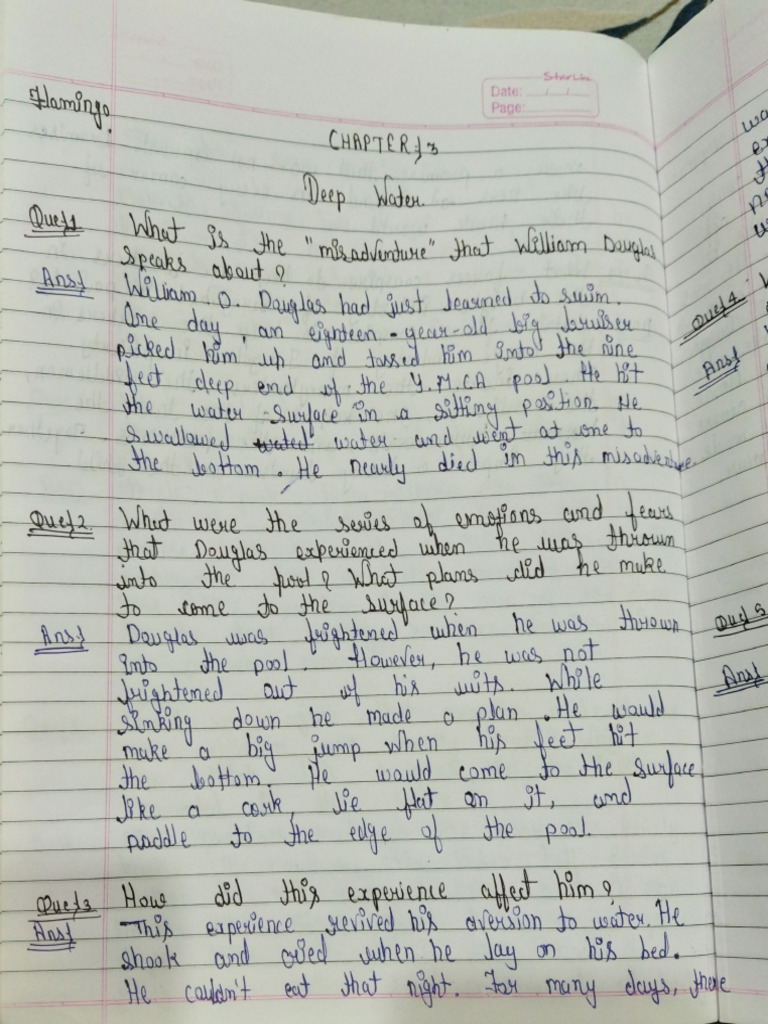 Starlix
Date:
Page:
Flamingo
CHAPTER 3
Deep Water
Que 1 What is the "misadventure" that William Douglas
speaks about?
Ans William. O. Douglas had just learned to swim.
One day, an eighteen-year-old big bruiser
picked him up and tossed him into the nine
feet deep end of the Y.M.CA pool. He hit
the water surface in a sitting position. He
swallowed water and went at one to
the bottom. He nearly died in this misadventure.
Que 2 What were the series of emotions and fears
that Douglas experienced when he was thrown
into the pool? What plans did he make
to come to the surface?
Ans Douglas was frightened when he was thrown
into the pool. However, he was not
frightened out of his wits. While
sinking down he made a plan. He would
make a big jump when his feet hit
the bottom. He would come to the surface
like a cork, lie flat on it, and
paddle to the edge of the pool.
Que 3 How did this experience affect him?
Ans This experience revived his aversion to water. He
shook and cried when he lay on his bed.
He couldn't eat that night. For many days, there
Que 4
Ans
Que 5
Ans